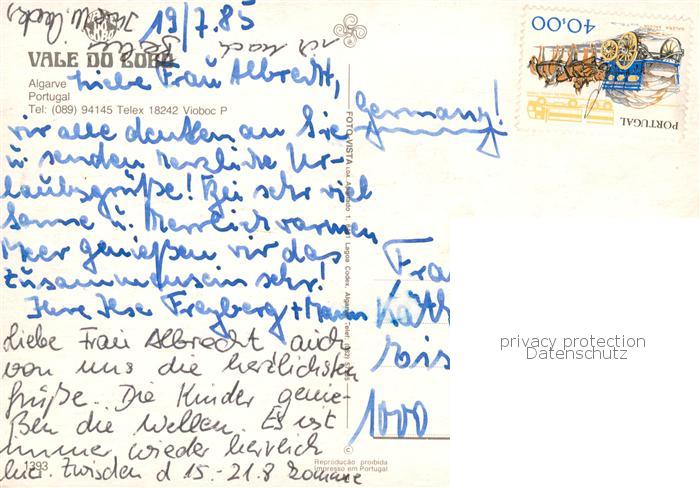 19/7.85
VALE DO LOBO
Algarve
Portugal
Tel: (089) 94145 Telex 18242 Vioboc P
Liebe Frau Albrecht,
wir alle denken an Sie
u. senden herzliche Ur-
laubsgrüße! Bei sehr viel
Sonne u. herrlich warmen
Meer genießen wir das
Zusammensein sehr!
Ihre Ilse Freyberg + Mann
Liebe Frau Albrecht auch
von uns die herzlichsten
Grüße. Die Kinder genie-
ßen die Wellen. Es ist
immer wieder herrlich
hier. Zwischen d 15.-21.8 komme
ich nach
Berlin
1393
FOTO VISTA
Reprodução proibida
Impresso em Portugal
40,00
PORTUGAL
Germany!
Fra
Käth
1000
privacy protection
Datenschutz